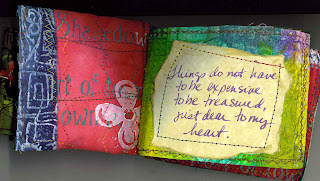 Things do not have
to be expensive
to be treasured,
just dear to my
heart.